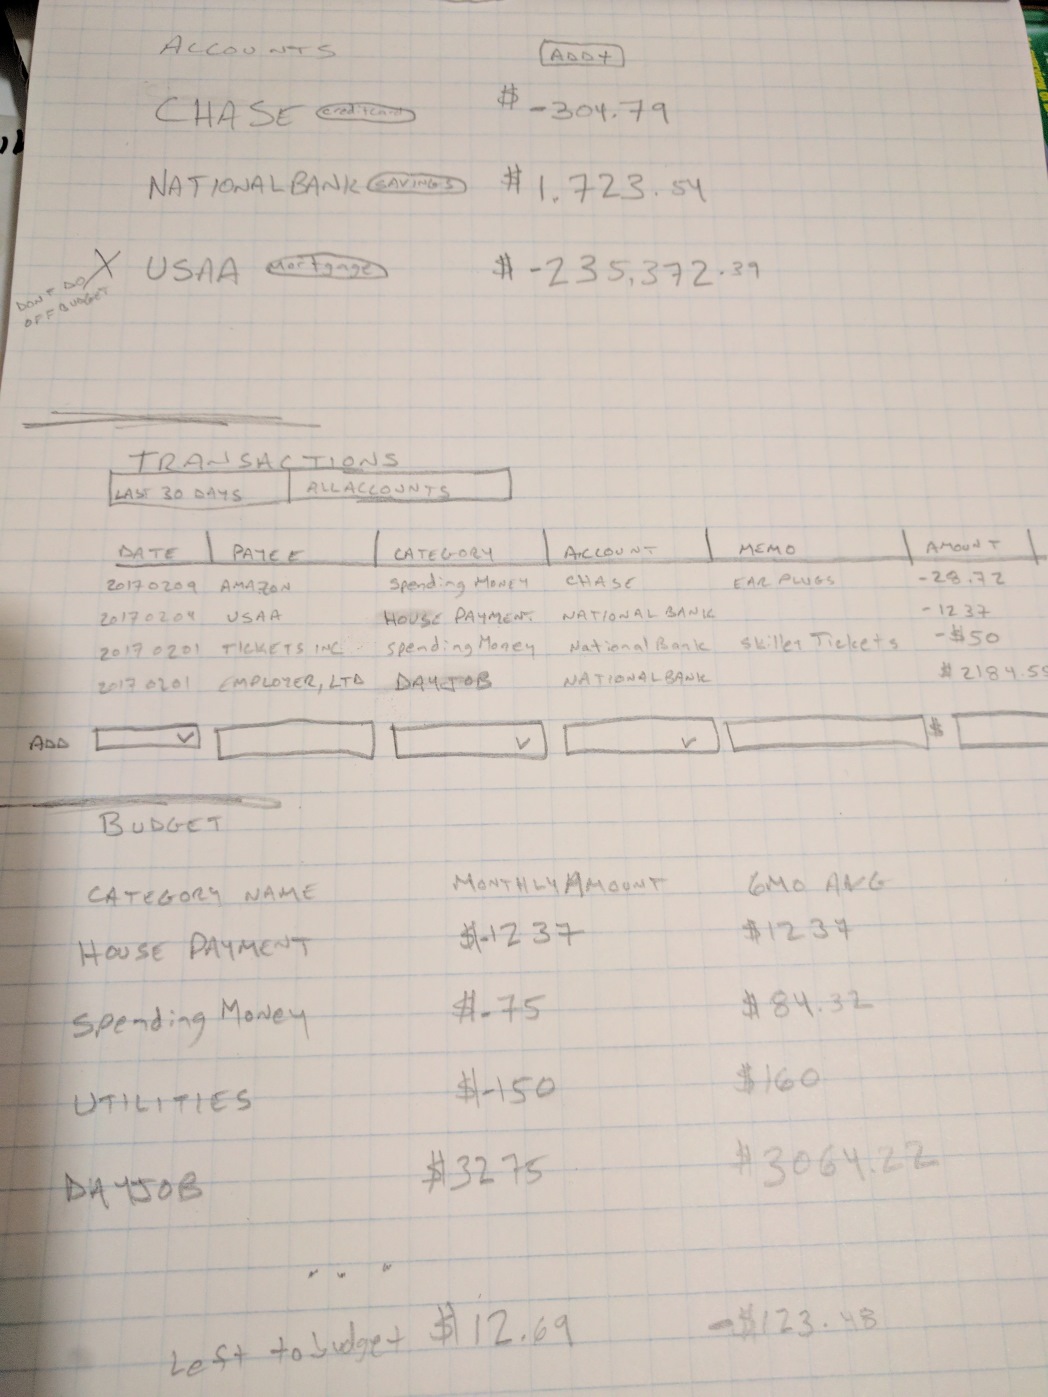 ACCOUNTS ADD+
CHASE creditcard $ -304.79
NATIONAL BANK SAVINGS $ 1,723.54
X USAA Mortgage $ -235,372.39
DON'T DO
OFF BUDGET
TRANSACTIONS
LAST 30 DAYS ALL ACCOUNTS
DATE PAYEE CATEGORY ACCOUNT MEMO AMOUNT
20170209 AMAZON Spending Money CHASE EAR PLUGS -28.72
20170204 USAA HOUSE PAYMENT NATIONAL BANK -1237
20170201 TICKETS INC Spending Money National Bank Skillet Tickets -$50
20170201 EMPLOYER, LTD DAYJOB NATIONAL BANK $2184.55
ADD $
BUDGET
CATEGORY NAME MONTHLY AMOUNT 6MO AVG
HOUSE PAYMENT $-1237 $1237
Spending Money $-75 $84.32
UTILITIES $-150 $160
DAYJOB $3275 $3064.22
...
Left to budget $112.69 -$123.48